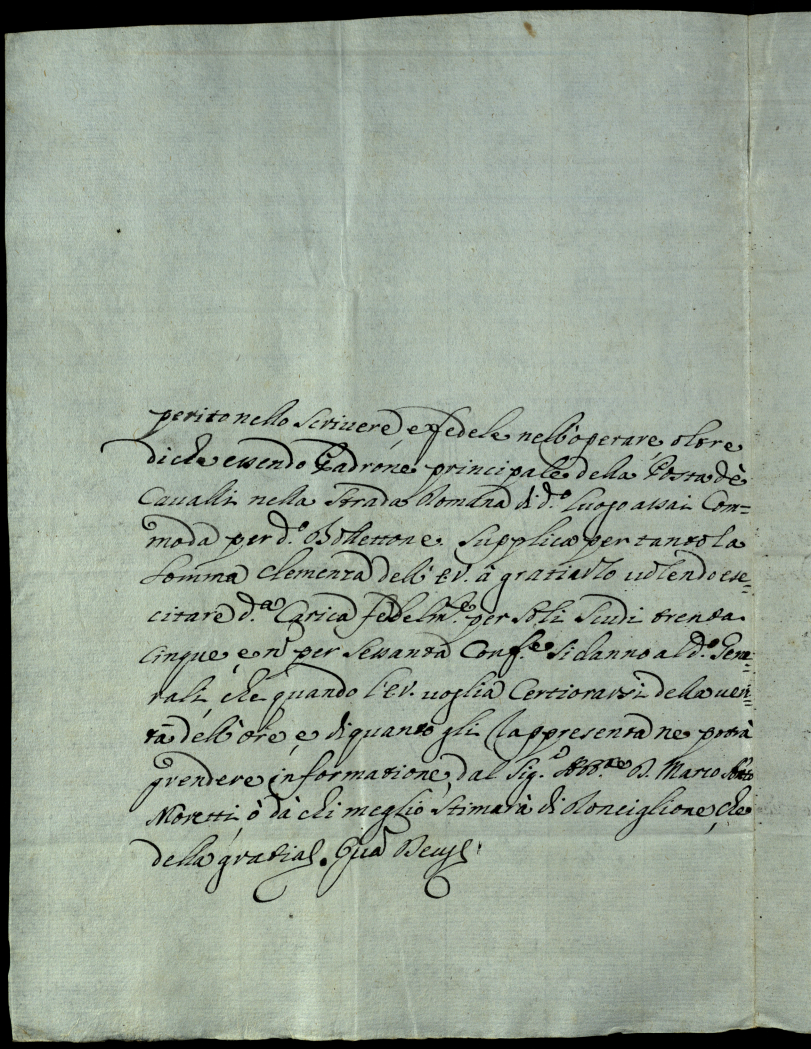 perito nello scrivere, e fedele nell'operare, oltre
di che essendo Padrone principale della Posta de
Cavalli nella Strada Romana di d.º luogo assai Com=
moda per d.º Bollettone. Supplica per tanto la
Somma clemenza dell'EV. à gratiarlo volendo eser=
citare d.ª Carica fedelm.te per soli scudi trenta
cinque, e nō per sessanta Conf.e si danno al d.º Gene=
rali, che quando l'EV. voglia Certiorarsi della veri=
tà dell'ore, e di quanto gli rappresenta ne potrà
prendere informatione, dal Sig.r D. Marco
Moretti, ò dà chi meglio stimarà di Ronciglione, che
della gratia. Qua Deus